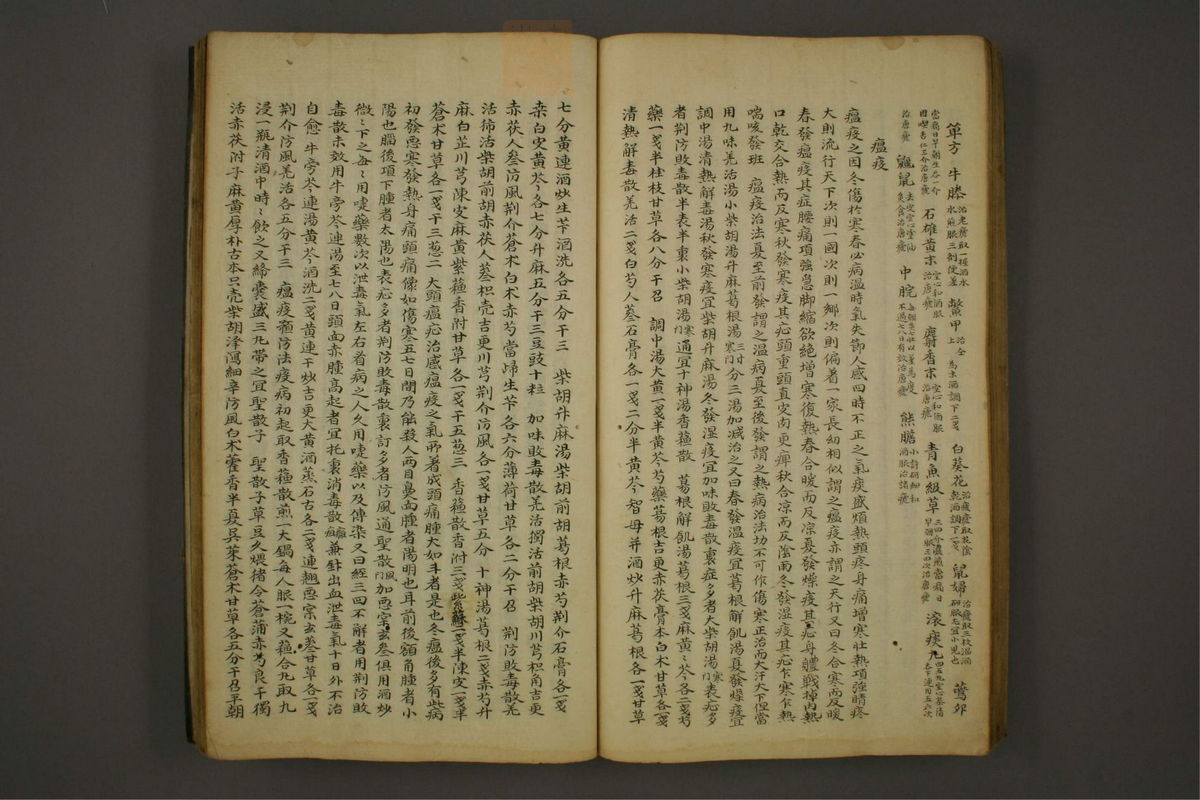 單方 牛膝 治老瘧取一握酒水 水煎服三劑便差 鱉甲 治全 上 爲末酒調下二戔 白葵花 治痎瘧取花陰 乾酒調下一戔 鼠婦 治瘧取三枚溫酒 研服尤宜小兒也 鷰卵
石雄黃末 空心和酒服 治唐瘧 麝香末 空心和酒服 治唐瘧 靑魚級草 早朝服三四次治唐瘧 滚痰丸
治唐瘧 瓢鼠 中脘 不過七八日有效治唐瘧 熊膽 小許研細和 酒服治諸瘧
瘟疫
瘟疫之因冬傷於寒春必病溫時氣失節人感四時不正之氣痰盛煩熱頭疼身痛增寒壯熱項強睛疼
大則流行天下次則一國次則一鄉次則偏着一家長幼相似謂之瘟疫亦謂之天行又曰冬合寒而反暖
春發瘟疫其症腰痛項強急脚縮欲絶增寒復熱春合暖而反凉夏發燥疫其症身軆戰掉內熱
口乾交合熱而反寒秋發寒疫其症頭重頭直皮肉更痺秋合凉而反陰雨冬發濕疫其症乍寒乍熱
喘咳發班 瘟疫治法夏至前發謂之温病夏至後發謂之熱病治法切不可作傷寒正治而大汗大下但當
用九味羌活湯小柴胡湯升麻葛根湯 寒門 分三湯加减治之又曰春發溫疫宜葛根解肌湯夏發燥疫宜
調中湯淸熱解毒湯秋發寒疫宜柴胡升麻湯冬發湿疫宜加味敗毒散裏症多者大柴胡湯 寒門 表症多
者荆防敗毒散半表半裏小柴胡湯 寒門 通宜十神湯香蘓散 葛根解肌湯葛根三戔麻黃黃芩各二戔芍
藥一戔半桂枝甘草各八分干召 調中湯大黃一戔半黃芩芍藥葛根吉更赤茯藁本白朮甘草各一戔
淸熱解毒散羌活二戔白芍人蔘石膏各一戔二分半黃芩智母并酒炒升麻葛根各一戔甘草
七分黃連酒炒生芐酒洗各五分干三 柴胡升麻湯柴胡前胡葛根赤芍荆介石膏各一戔
桒白皮黃芩各七分升麻五分干三豆豉十粒 加味敗毒散羌活獨活前胡柴胡川芎枳角吉更
赤茯人蔘防風荆介蒼朮白朮赤芍當歸生芐各六分薄荷甘草各二分干召 荆防敗毒散羌
活獨活柴胡前胡赤茯人蔘枳壳吉更川芎荆介防風各一戔甘草五分 十神湯葛根二戔赤芍升
麻白芷川芎陳皮麻黃紫蘓香附甘草各一戔干五葱三 香蘓散香附三戔紫蘇二戔半陳皮一戔半
蒼朮甘草各一戔干三葱二 大頭瘟症治感瘟疫之氣所着成頭痛腫大如斗者是也冬瘟後多有此病
初發惡寒發熱身痛頭痛儼如傷寒五七日間乃能殺人兩目鼻面腫者陽明也耳前後額角腫者小
陽也腦後項下腫者太陽也表症多者荆防敗毒散裏訂多者防風通聖散 風門 加惡宲玄蔘俱用酒炒
微微下之每每用嚏藥數次以泄毒氣左右看病之人久用嚏藥以及傳染又曰經三四不解者用荆防敗
毒散未效用牛旁芩連湯至七八日頭面赤腫高起者宜托裏消毒散 癰疽 兼針出血泄毒氣十日外不治
自愈 牛旁芩連湯黃芩酒洗二戔黃連干炒吉更大黃酒蒸石古各二戔連翹惡宲玄蔘甘草各一戔
荆介防風羌活各五分干三 瘟疫預防法疫病初起取香蘓散煎一大鍋每人服一椀又蘓合丸取九
浸一瓶淸酒中時時飮之又縫囊盛三丸帶之宜聖散子 聖散子草豆久煨猪令蒼蒲赤芍良干獨
活赤茯附子麻黃厚朴古本只壳柴胡泽瀉細辛防風白朮藿香半夏吳茱蒼朮甘草各五分干召早朝